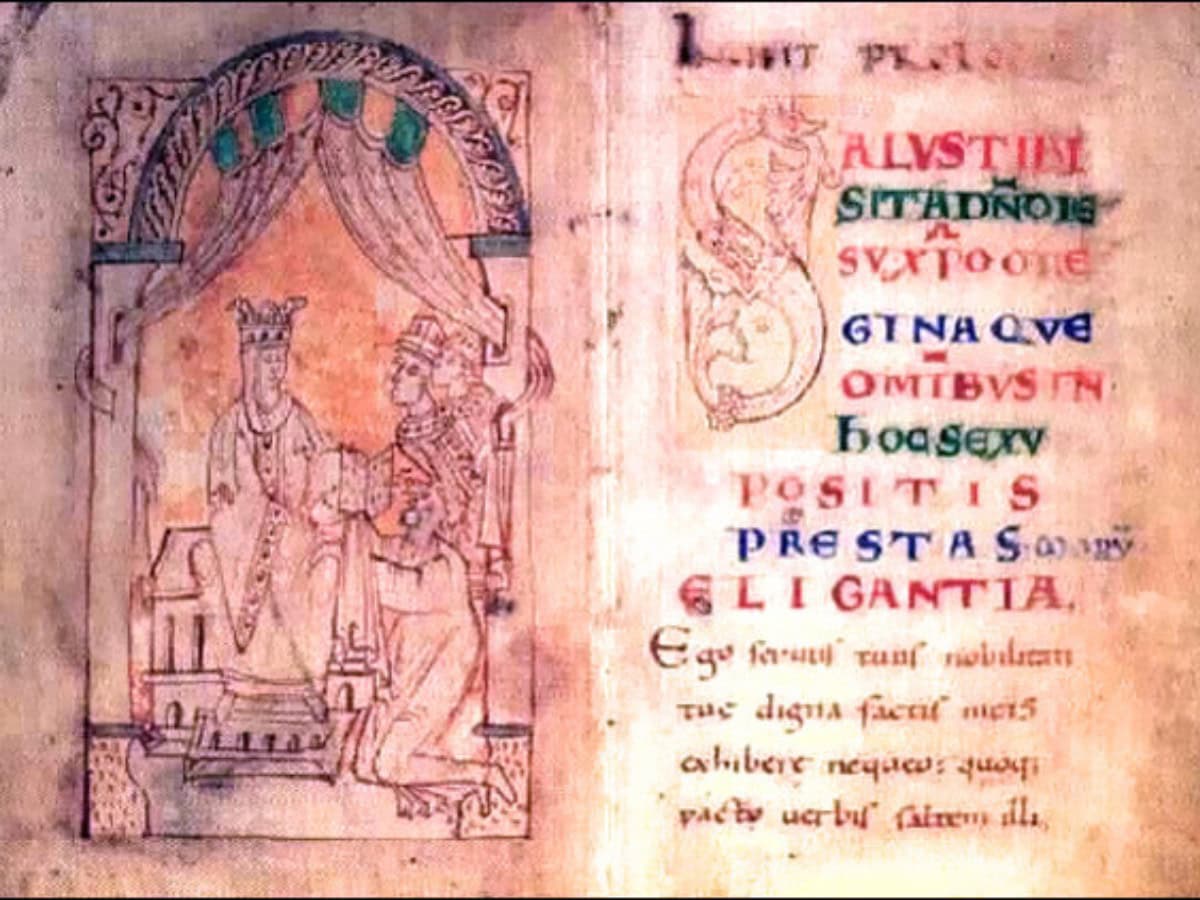 SALVS TIBI
SIT A DÑO IE
SV XPO O RE
GINA QVE
OMIBVS IN
hOC SEXV
POSITIS
PRESTAS
ELIGANTIA.
Ego seruus tuus nobilitati
tuę digna factis meis
exhibere nequeo: quoq;
pacto uerbis saltem illi,